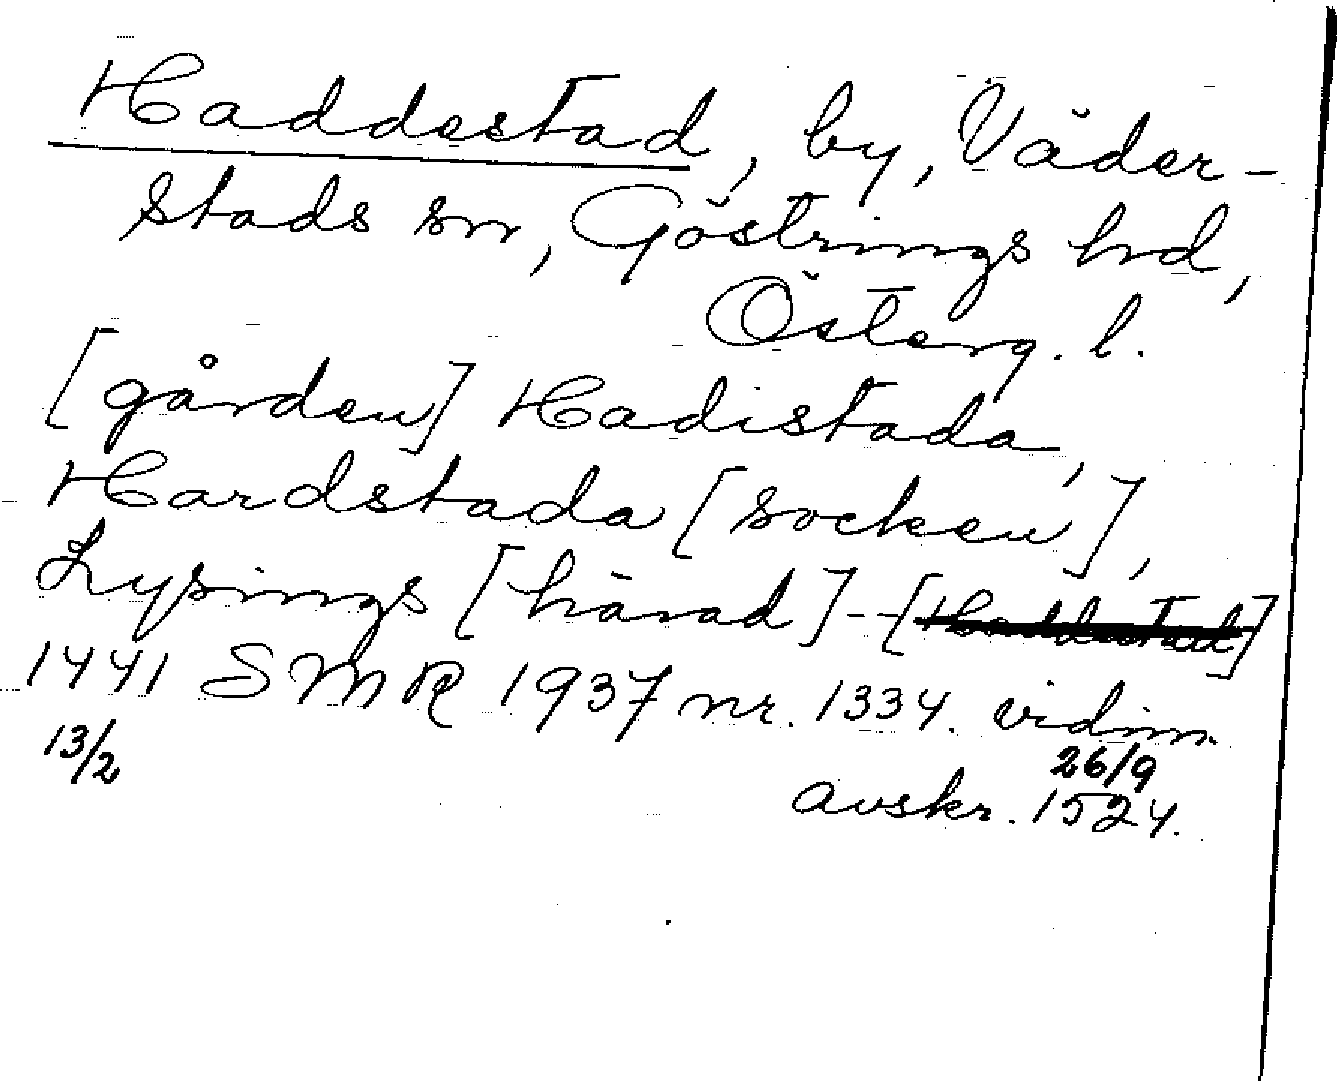 Haddestad, by, Väder-
stads sn, Göstrings hrd,
Österg. l.
[gården] Hadistada,
Hardstada [socken],
Lysings [härad] - [Haddestad]
1441 SMR 1937 nr. 1334. vidim.
13/2 26/9
avskr. 1524.